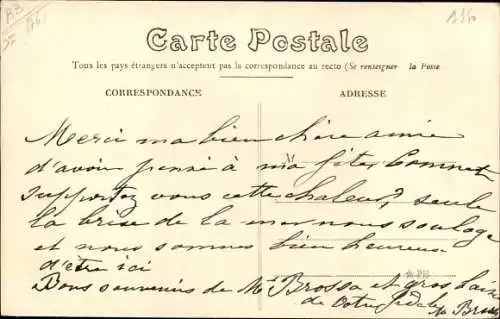 Carte Postale
Tous les pays étrangers n'acceptent pas la correspondance au recto (Se renseigner la Poste
CORRESPONDANCE
ADRESSE
Merci ma bien chère amie
d'avoir pensé à ma fête, Comment
supportez vous cette chaleur? seule
la brise de la mer nous soulage
et nous sommes bien heureux
d'être ici
Bons souvenirs de Mr Brossa et gros baisers
de votre